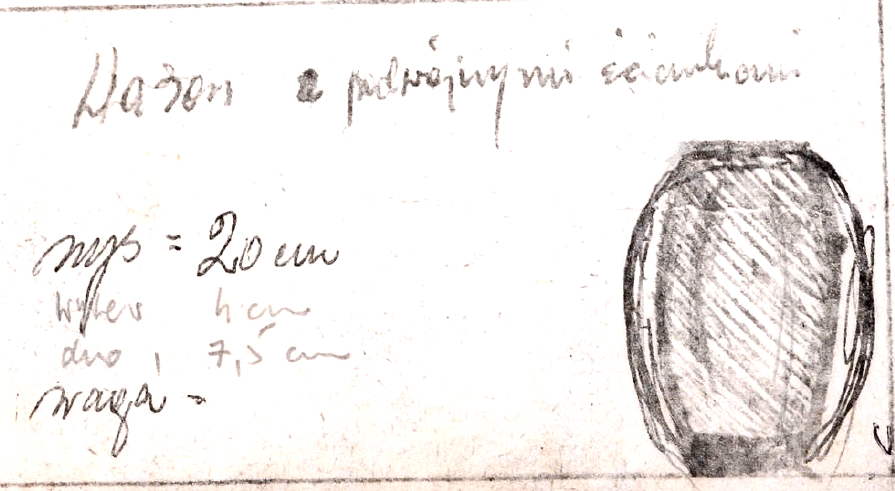 Wazon z podwójnymi ściankami
wys = 20 cm
wylew 4 cm
dno 7,5 cm
waga -